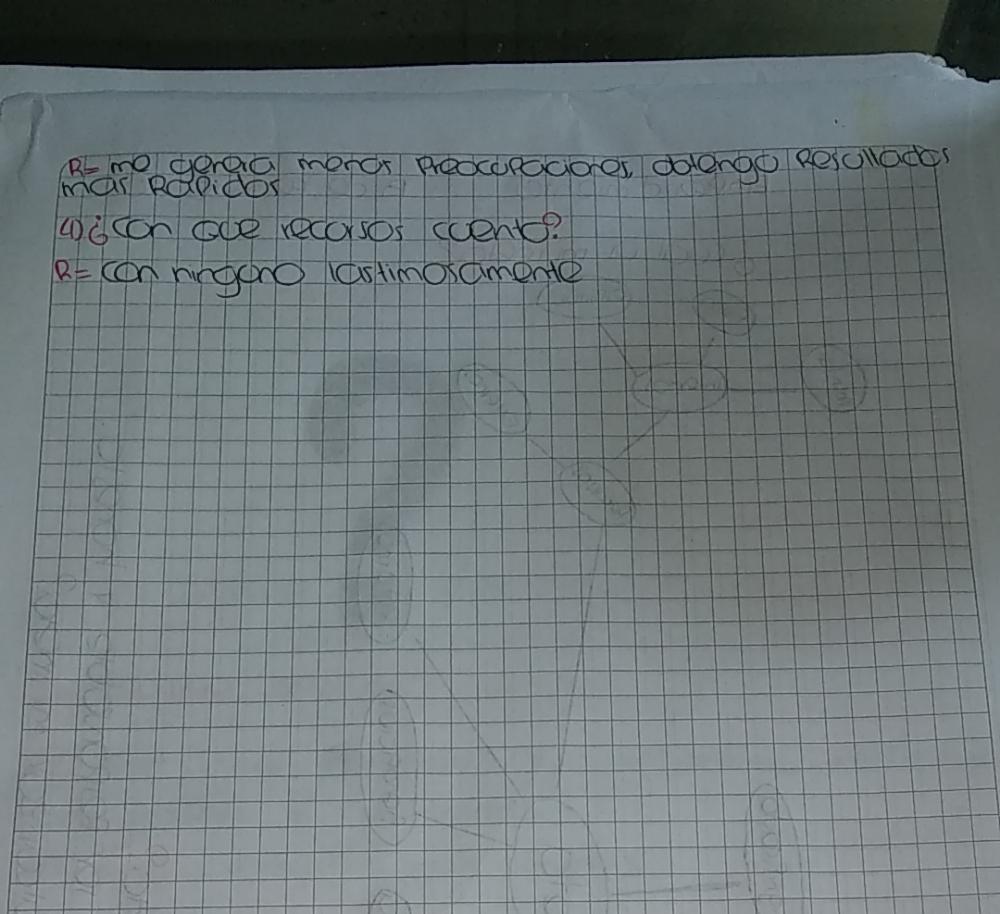 R= me genera menos preocupaciones, obtengo Resultados
mas Rapidos
4) ¿con que recursos cuento?
R= con ninguno lastimosamente